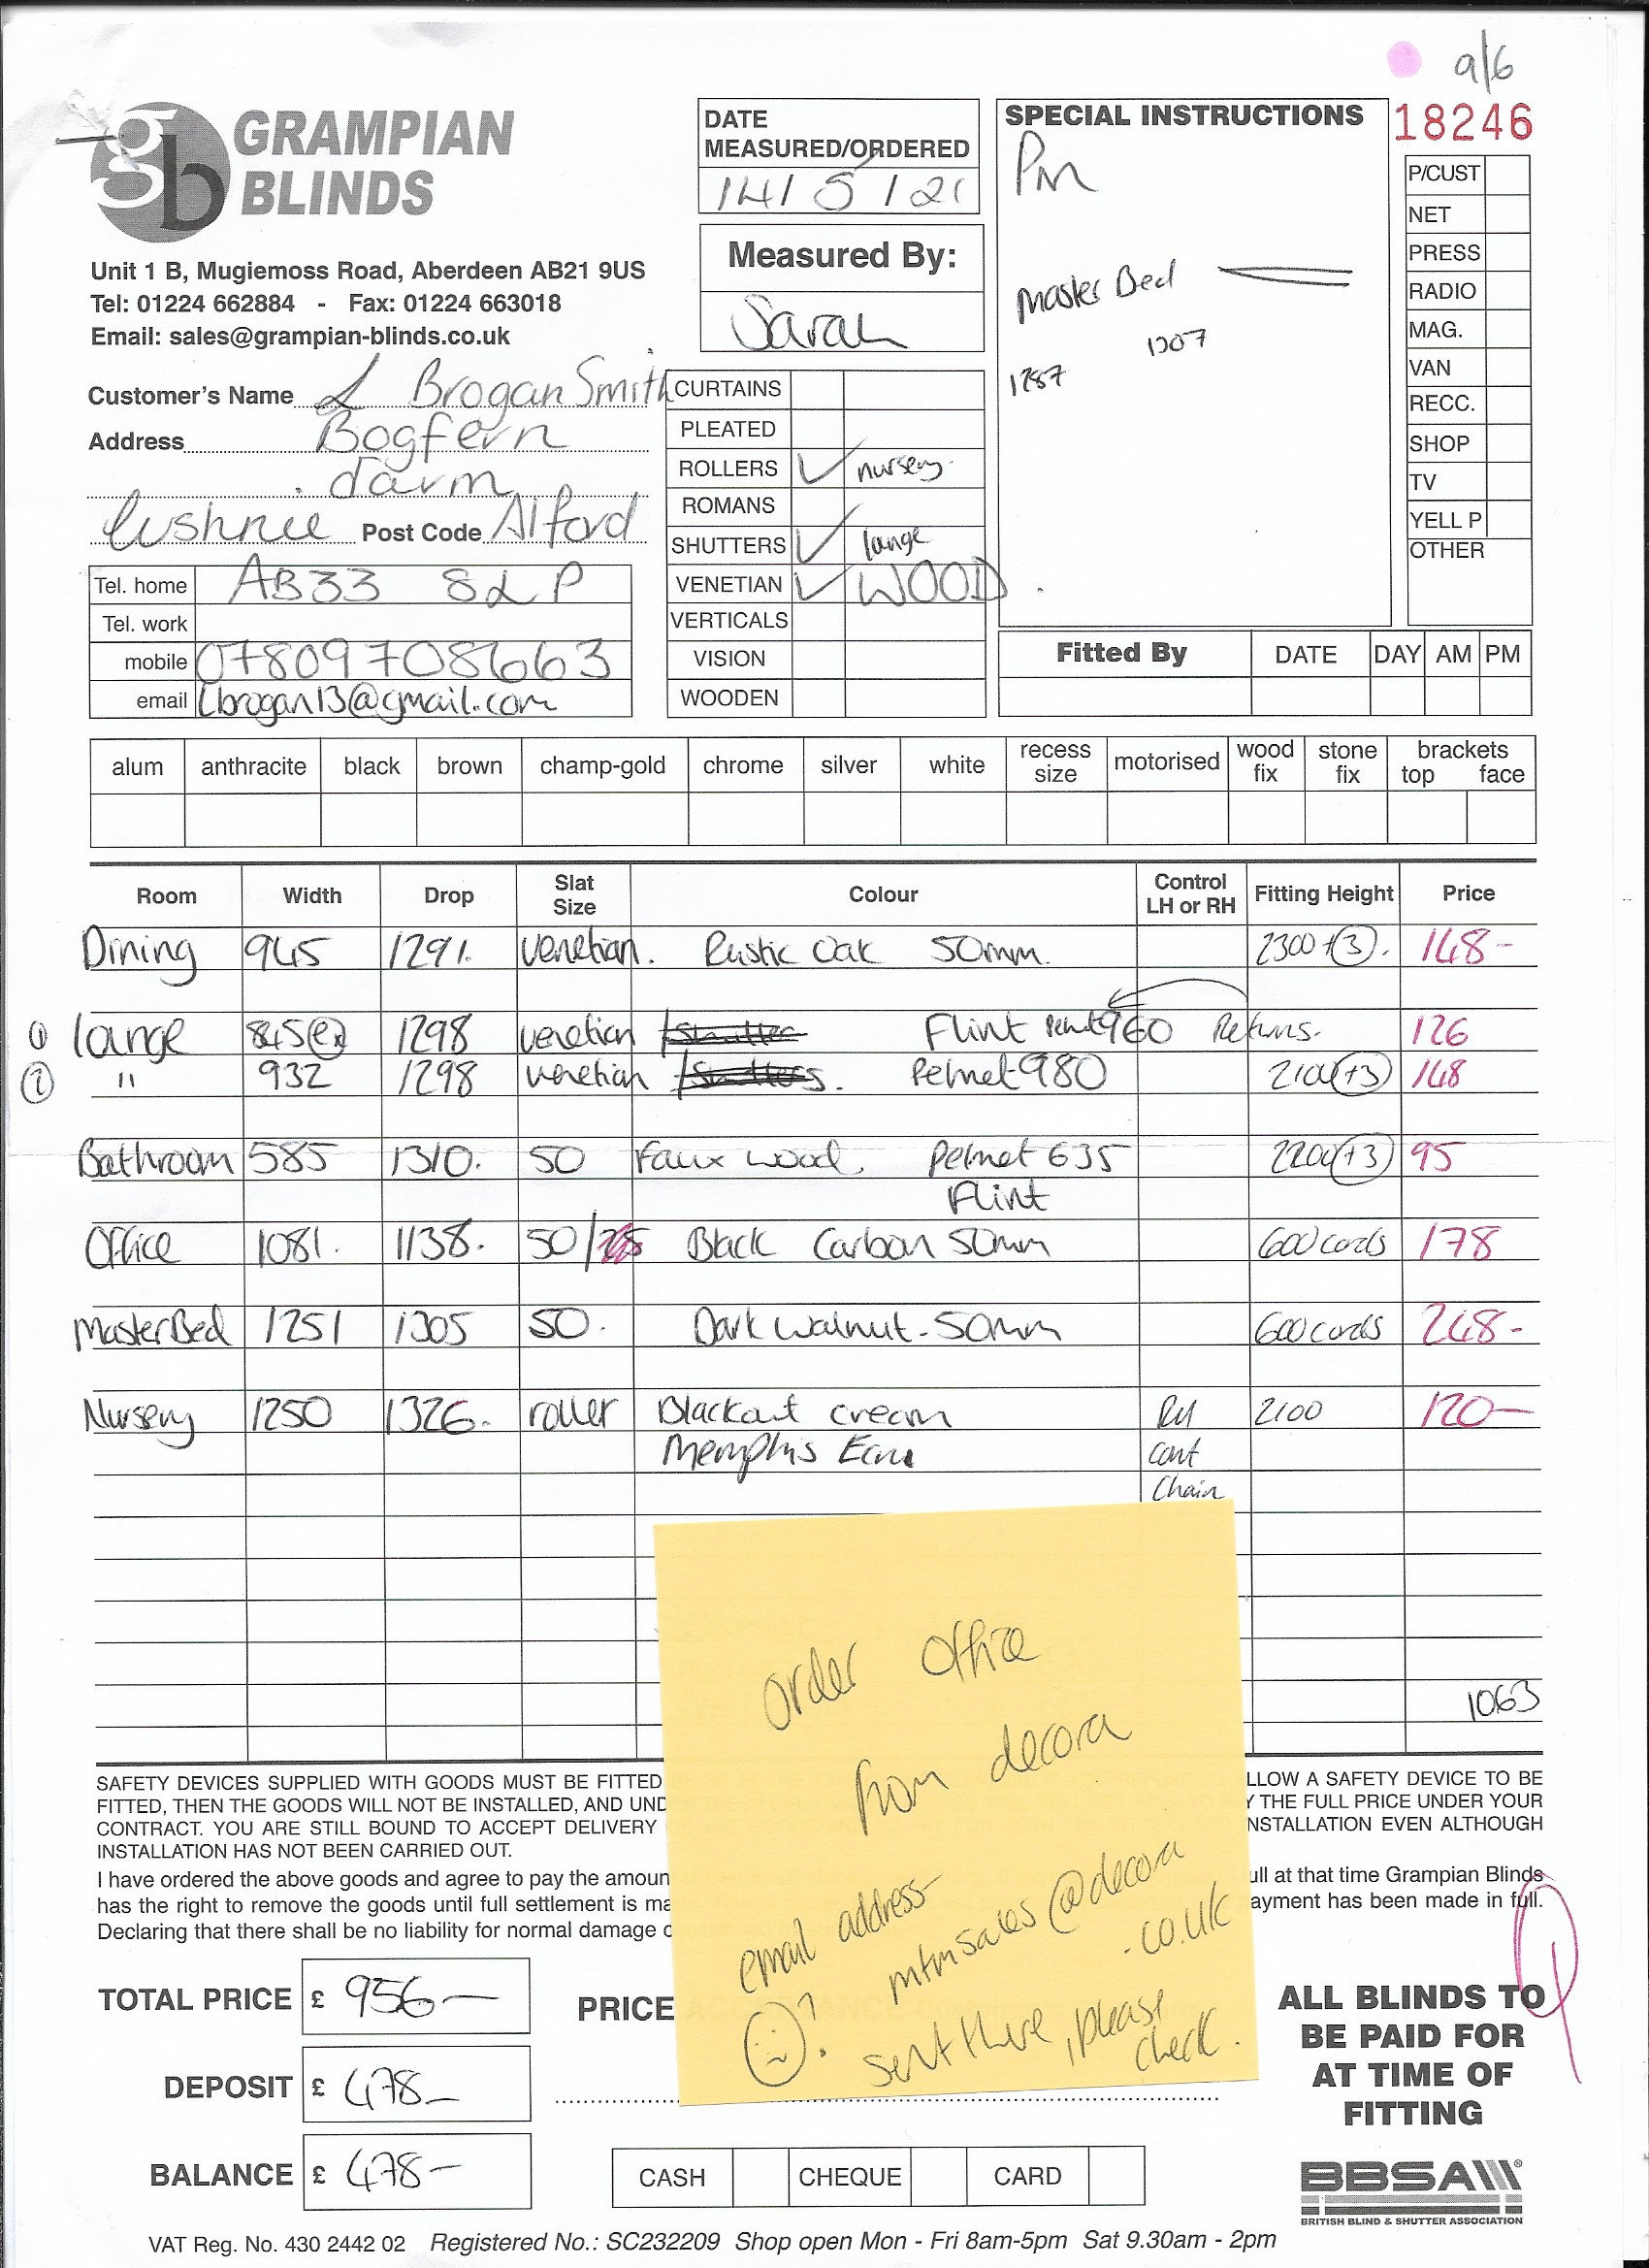 9/6
18246
GRAMPIAN
BLINDS
Unit 1 B, Mugiemoss Road, Aberdeen AB21 9US
Tel: 01224 662884 - Fax: 01224 663018
Email: sales@grampian-blinds.co.uk
DATE
MEASURED/ORDERED
14/5/21
Measured By:
Sarah
SPECIAL INSTRUCTIONS
Pm
Master Bed
1307
1287
P/CUST
NET
PRESS
RADIO
MAG.
VAN
RECC.
SHOP
TV
YELL P
OTHER
Customer's Name L Brogan Smith
Address Bogfern
farm
Cushnie Post Code Alford
Tel. home AB33 8LP
Tel. work
mobile 07809708663
email lbrogan13@gmail.com
CURTAINS
PLEATED
ROLLERS ✓ nursery
ROMANS
SHUTTERS ✓ lounge
VENETIAN ✓ WOOD
VERTICALS
VISION
WOODEN
Fitted By DATE DAY AM PM
alum anthracite black brown champ-gold chrome silver white recess size motorised wood fix stone fix brackets top face
Room Width Drop Slat Size Colour Control LH or RH Fitting Height Price
Dining 945 1291. venetian. Rustic Oak 50mm. 2300 +3. 148-
① lounge 845 1298 venetian Flint Pelmet 960 Returns. 126
② " 932 1298 venetian Pelmet 980 2100 +3 148
Bathroom 585 1310. 50 Faux wood. Pelmet 635 2200 +3 95
Flint
Office 1081. 1138. 50/ Black Carbon 50mm 600 cords 178
Master Bed 1251 1305 50. Dark walnut - 50mm 600 cords 248-
Nursery 1250 1326. roller Blackout cream RH 2100 120-
Memphis Ecru cont
Chain
1063
order office
from decora
email address-
mtmsales@decora
.co.uk
? sent there, please
check.
SAFETY DEVICES SUPPLIED WITH GOODS MUST BE FITTED LLOW A SAFETY DEVICE TO BE
FITTED, THEN THE GOODS WILL NOT BE INSTALLED, AND UND Y THE FULL PRICE UNDER YOUR
CONTRACT. YOU ARE STILL BOUND TO ACCEPT DELIVERY NSTALLATION EVEN ALTHOUGH
INSTALLATION HAS NOT BEEN CARRIED OUT.
I have ordered the above goods and agree to pay the amoun ull at that time Grampian Blinds
has the right to remove the goods until full settlement is ma ayment has been made in full.
Declaring that there shall be no liability for normal damage
TOTAL PRICE £ 956-
PRICE
DEPOSIT £ 478-
BALANCE £ 478-
CASH CHEQUE CARD
ALL BLINDS TO
BE PAID FOR
AT TIME OF
FITTING
BBSA
BRITISH BLIND & SHUTTER ASSOCIATION
VAT Reg. No. 430 2442 02 Registered No.: SC232209 Shop open Mon - Fri 8am-5pm Sat 9.30am - 2pm